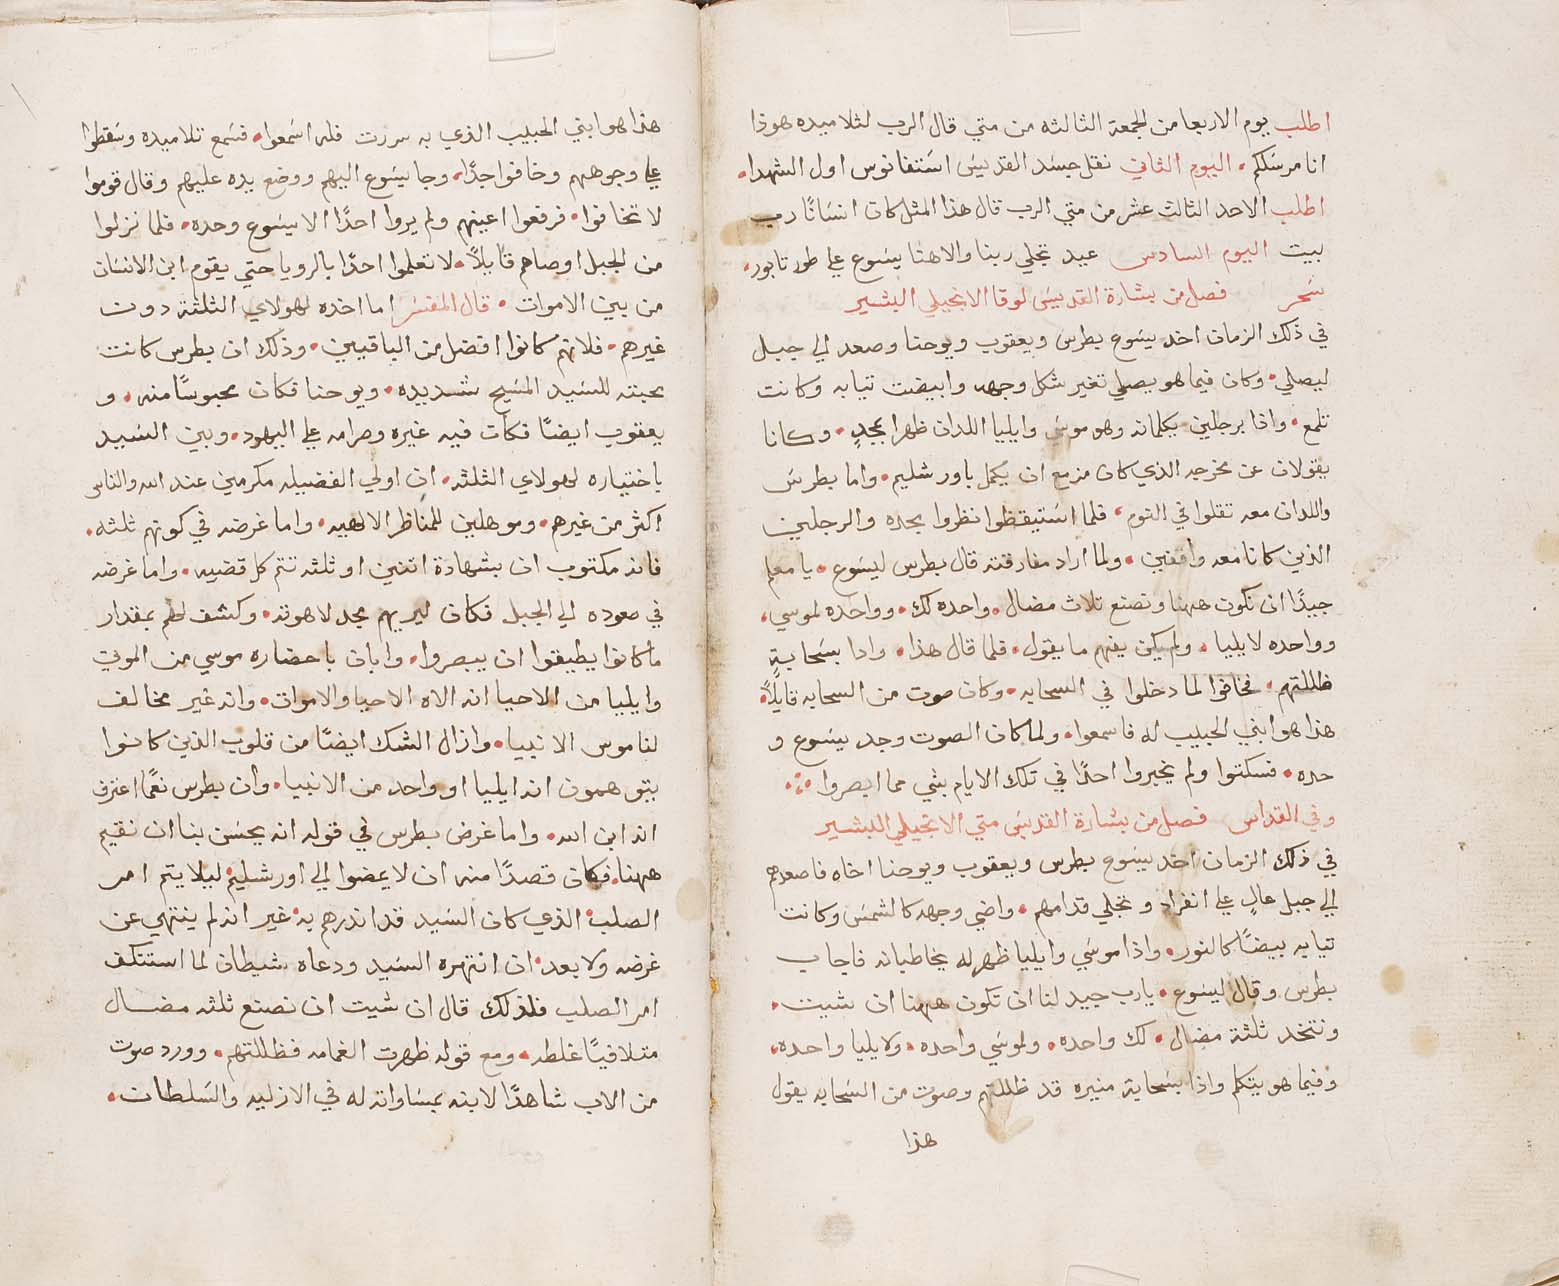 اطلب يوم الاربعا من الجمعة الثالثه من متي قال الرب لتلاميده هودا
انا مرسلكم • اليوم الثاني نقل جسد القديس استفانوس اول الشهدا •
اطلب الاحد الثالث عشر من متي الرب قال هذا المثل كان انسانًا رب
بيت اليوم السادس عيد تجلي ربنا والاهنا يسوع علي طور تابور •
سحر فصل من بشارة القديس لوقا الانجيلي البشير
في ذلك الزمان اخد يسوع بطرس ويعقوب ويوحنا وصعد الي جبل
ليصلي • وكان فيما هو يصلي تغير شكل وجهه وابيضت تيابه وكانت
تلمع • واذا برجلين يكلمانه وهو موسي وايليا اللدان ظهرا بمجدٍ • وكانا
يقولان عن مخرجه الذي كان مزمع ان يكمل باورشليم • واما بطرس
واللدان معه تقلوا في النوم • فلما استيقظوا نظروا مجده والرجلين
الذين كانا معه واقفين • ولما اراد مفارقته قال بطرس ليسوع • يا معلم
جيدًا ان نكون ههنا ونصنع تلاث مضال • واحده لك • وواحده لموسي •
وواحده لايليا • ولم يكن يفهم ما يقول • فلما قال هذا • وادا بسحابةٍ
ظللتهم • فخافوا لما دخلوا في السحابه • وكان صوت من السحابه قايلًا •
هذا هو ابني الحبيب له فاسمعوا • ولما كان الصوت وجد يسوع و
حده • فسكتوا ولم يخبروا احدًا في تلك الايام بشي مما ابصروا ⁘
وفي القداس فصل من بشارة القديس متي الانجيلي البشير
في ذلك الزمان اخد يسوع بطرس ويعقوب ويوحنا اخاه فاصعدهم
الي جبل عالٍ علي انفراد وتجلي قدامهم • واضي وجهه كالشمس وكانت
تيابه بيضًا كالنور • واذا موسي وايليا ظهر له يخاطبانه فاجاب
بطرس وقال ليسوع • يارب جيد لنا ان نكون ههنا ان شيت •
ونتخد ثلثة مضال • لك واحده • ولموسي واحده • ولايليا واحده •
وفيما هو يتكلم واذا بسحابة منيره قد ظللتهم وصوت من السحابه يقول
هذا
هذا هو ابني الحبيب الذي به سررت فله اسمعوا • فسمع تلاميده وسقطوا
علي وجوههم وخافوا جدًا • وجا يسوع اليهم ووضع يده عليهم وقال قوموا
لا تخافوا • فرفعوا اعينهم ولم يروا احدًا الا يسوع وحده • فلما نزلوا
من الجبل اوصاهم قايلًا • لا تعلموا احدًا بالرويا حتي يقوم ابن الانسان
من بين الاموات • قال المفسر اما اخده لهولاي الثلثة دون
غيرهم • فلانهم كانوا افضل من الباقيين • وذلك ان بطرس كانت
محبته للسيد المسيح شديده • ويوحنا فكان محبوسًا منه • و
يعقوب ايضًا فكان فيه غيره وصرامه علي اليهود • وبين السيد
باختياره لهولاي الثلثه • ان اولي الفضيله مكرمين عند الله والناس
اكثر من غيرهم • وموهلين للمناظر الالهيه • واما غرضه في كونهم ثلثه •
فانه مكتوب ان بشهادة اتنين او ثلثه تتم كل قضيه • واما غرضه
في صعوده الي الجبل فكان ليريهم مجد لاهوته • وكشف لهم بمقدار
ما كانوا يطيقوا ان يبصروا • وابان باحضاره موسي من الموتي
وايليا من الاحيا انه الاه الاحيا والاموات • وانه غير مخالف
لناموس الانبيا • وازال الشك ايضًا من قلوب الذين كانوا
يتوهمون انه ايليا او واحد من الانبيا • وان بطرس نعمًا اعترف
انه ابن الله • واما غرض بطرس في قوله انه يحسن بنا ان نقيم
ههنا • فكان قصدًا منه ان لا يمضوا الي اورشليم ليلا يتم امر
الصلب الذي كان السيد قد اندرهم به • غير انه لم ينتهي عن
غرضه ولا بعد • ان انتهره السيد ودعاه شيطان لما استنكف
امر الصلب فلذلك قال ان شيت ان نصنع ثلثه مضال
متلافيًا غلطه • ومع قوله ظهرت الغمامه فظللتهم • وورد صوت
من الاب شاهدًا لابنه بمساواته له في الازليه والسلطان •